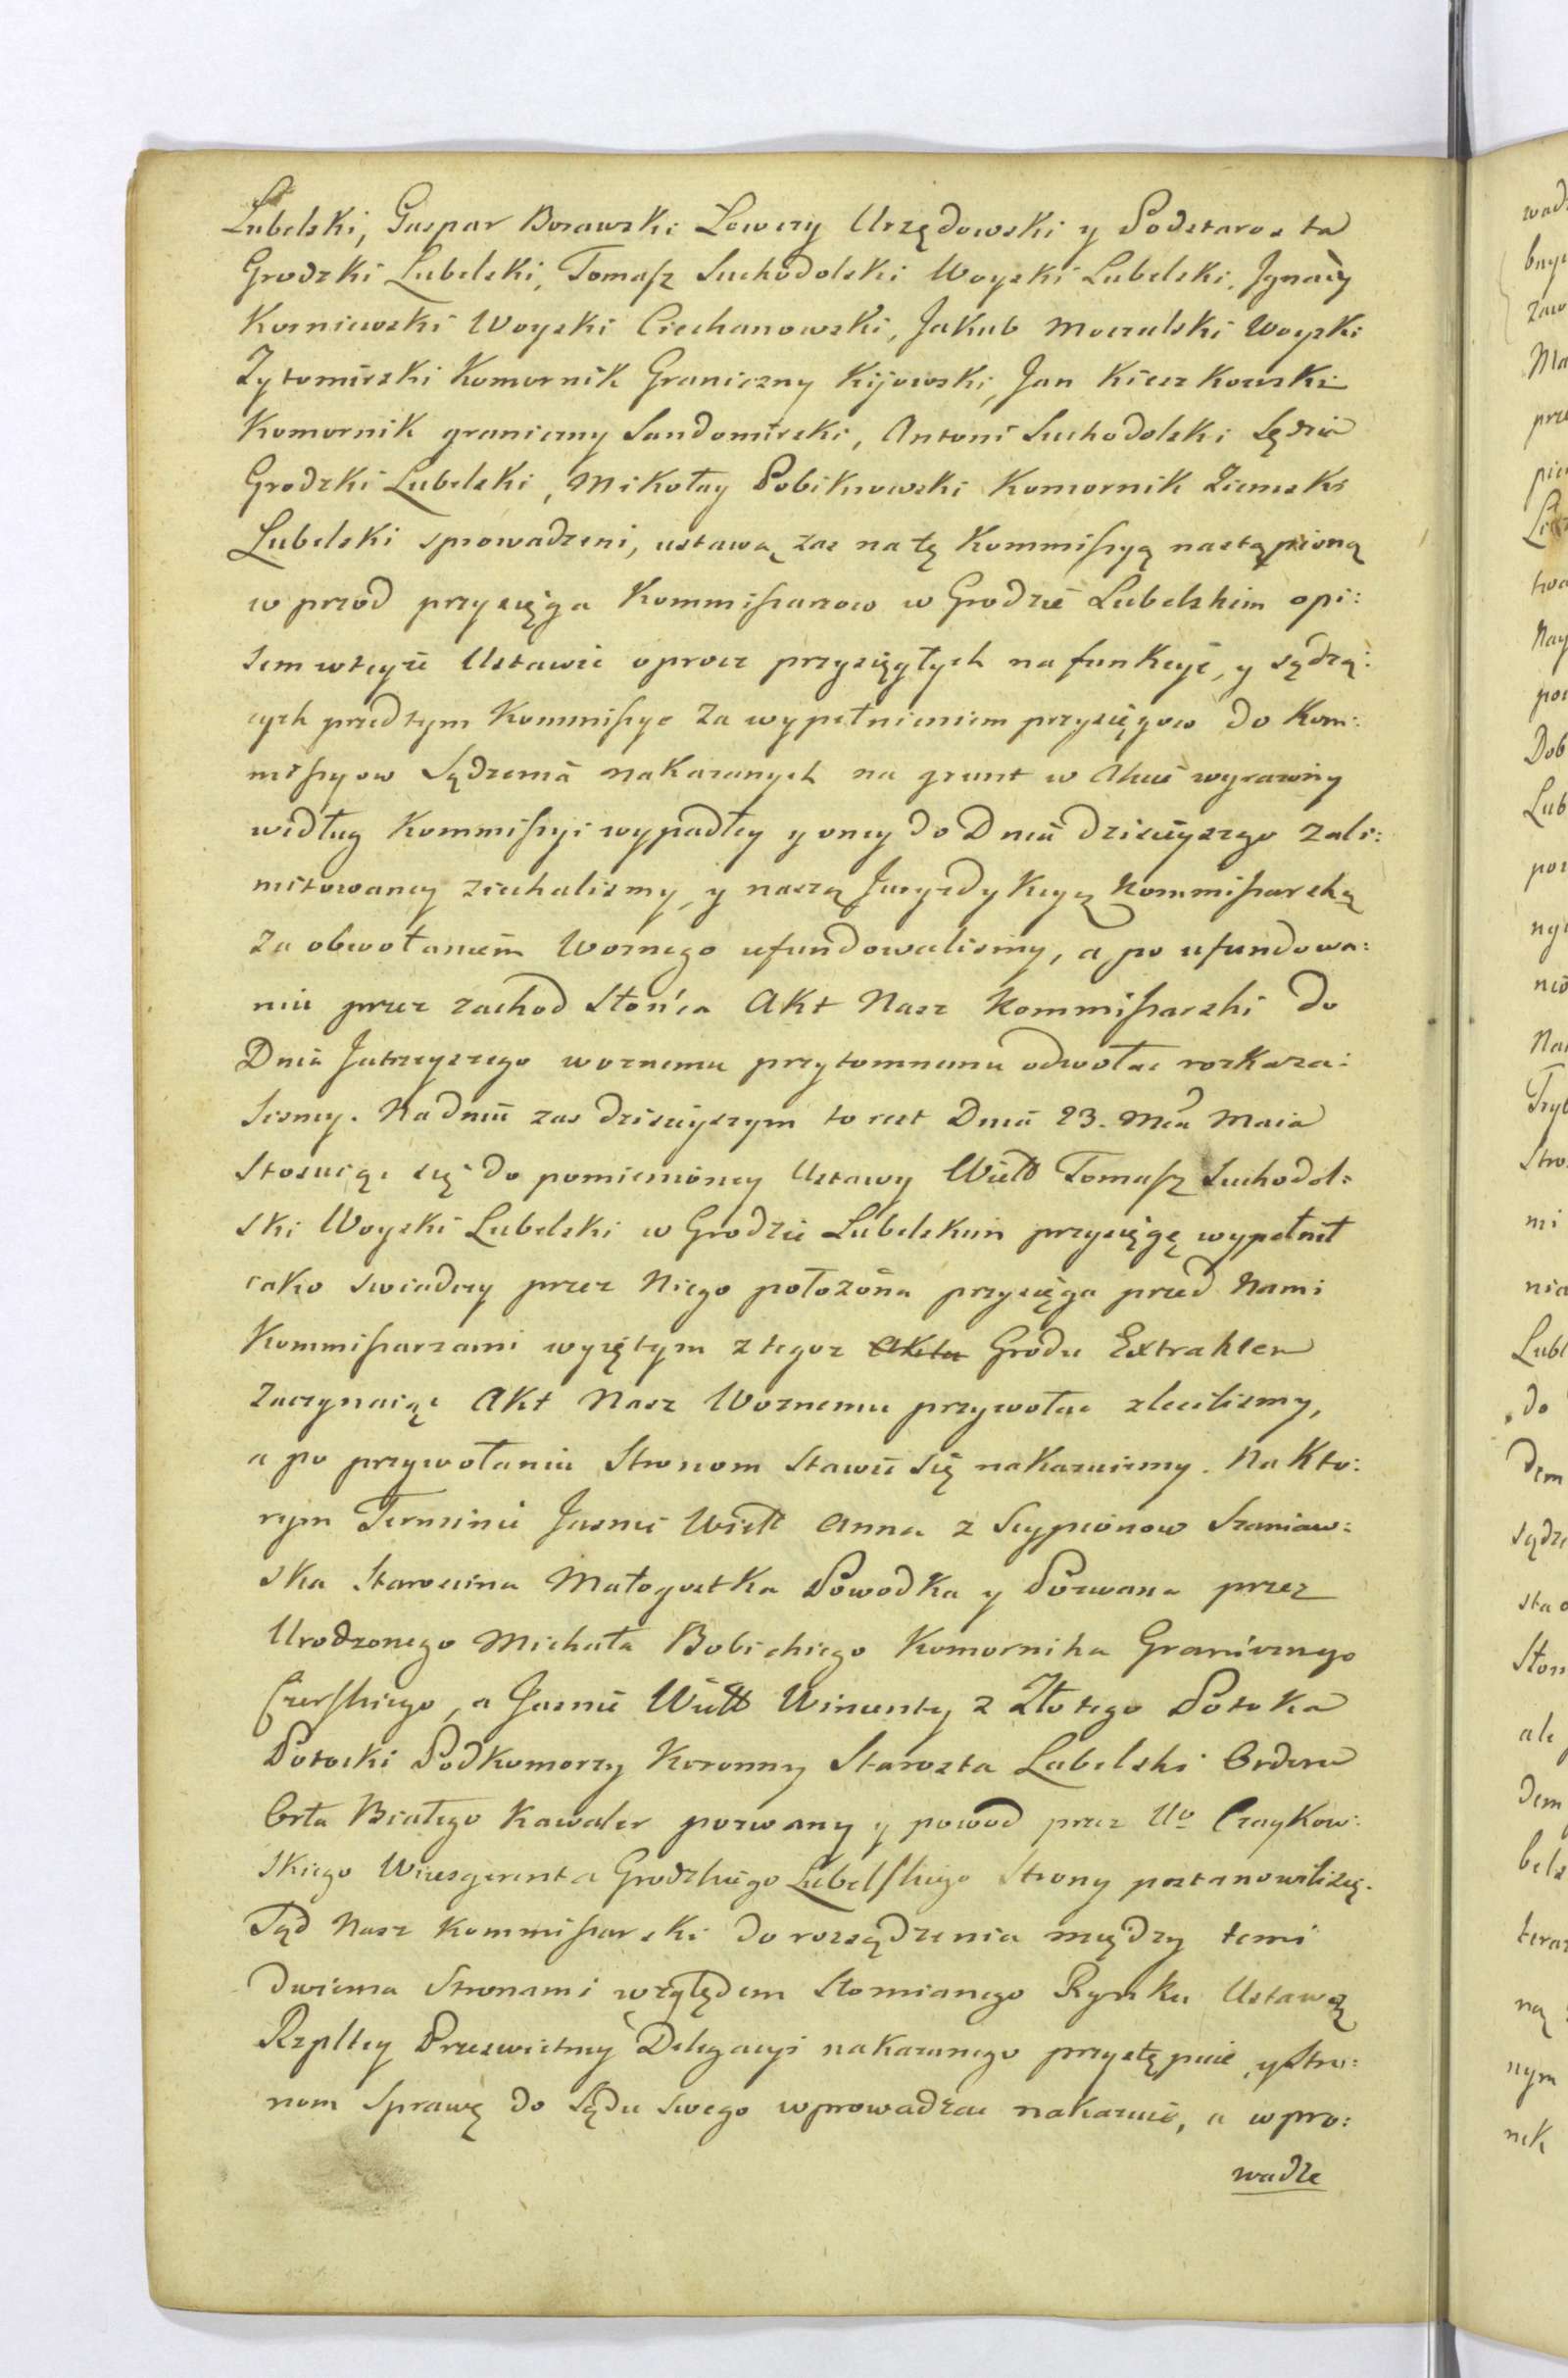 Lubelski, Gaspar Borawski Łowczy Urzędowski y Podstarosta
Grodzki Lubelski, Tomasz Suchodolski Woyski Lubelski, Jgnacy
Korniewski Woyski Ciechanowski, Jakub Moczulski Woyski
Zytomirski Komornik Graniczny Kijowski, Jan Kiczkowski
Komornik graniczny Sandomirski, Antoni Suchodolski Sędzia
Grodzki Lubelski, Mikołay Pobiknowski Komornik Ziemski
Lubelski sprowadzeni, ustawą zas na tę Kommissyą nastąpioną
w przod przysięga Kommissarzow w Grodzie Lubelskim opi:
sem wteyże Ustawie oprocz przysięgłych na funkcyę, y sądzą:
cych przed tym Kommissye za wypełnieniem przysięgow do Kom:
missyow Sądzenia nakazanych na grunt w Akcie wyrazony
według Kommissyi wypadłey y oney do Dnia dzisieyszego zali:
mitowaney ziechalismy, y naszą Juryzdykcyą Kommissarską
za obwołaniem Woznego ufundowalismy, a po ufundowa:
niu przez zachod Słońca Akt Nasz Kommissarski do
Dnia Jutrzeyszego woznemu przytomnemu odwołac rozkaza:
lismy. Na dniu zas dzisieyszym to iest Dnia 23. Mca Maia
Stosuiąc się do pomienioney Ustawy Wielb Tomasz Suchodol:
ski Woyski Lubelski w Grodzie Lubelskim przysięgę wypełnił
iako swiadczy przez Niego położona przysięga przed Nami
Kommissarzami wyiętym z tegoz Aktu Grodu Extraktem
Zaczynaiąc Akt Nasz Woznemu przywołac zlecilismy,
a po przywołaniu Stronom stawic się nakazuiemy. Na Kto:
rym Terminie Jasnie Wielb Anna z Scypionow Szaniaw:
ska Starościna Małogostka Powodka y Pozwana przez
Urodzonego Michała Bobickiego Komornika Granicznego
Czerskiego, a Jasnie Wielb Wincenty z Złotego Potoka
Potocki Podkomorzy Koronny Starosta Lubelski Orderu
Orła Białego Kawaler pozwany y powod przez Uo Czaykow:
skiego Wicesgerenta Grodzkiego Lubelskiego Strony postanowili się.
Sąd Nasz Kommissarski do rozsądzenia między temi
dwiema Stronami względem Słomianego Rynku Ustawą
Rzpltey Przeswietney Delegacyi nakazanego przystępuie, y Stro:
nom Sprawę do Sądu swego wprowadzac nakazuie, a wpro:
wadze